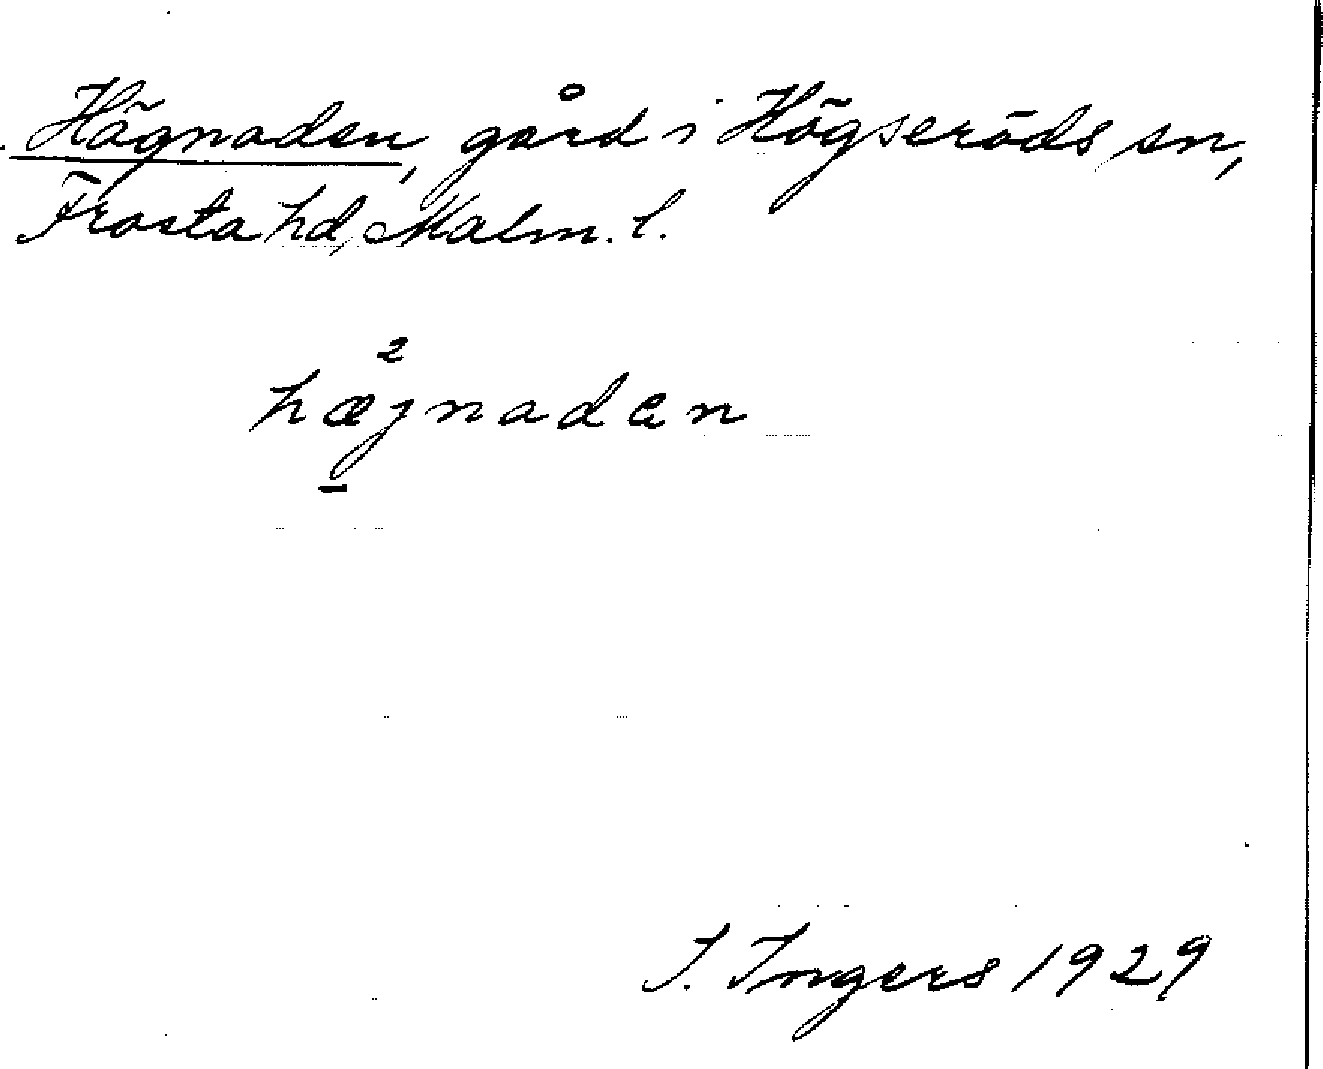 Hägnaden, gård i Högseröds sn,
Frosta hd, Malm. l.
2
hæjnadεn
I. Ingers 1929